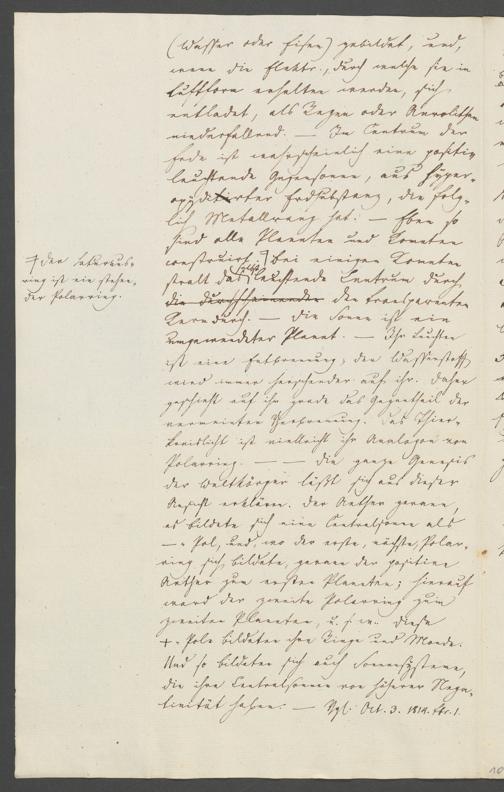 (Wasser oder Eisen) gebildet, und,
wenn die Elektr., durch welche sie in
Luftform erhalten werden, sich
entladet, als Regen oder Aerolithen
niederfallend. — Im Centrum der
Erde ist wahrscheinlich eine positiv
leuchtende Gegensonne, aus hyper-
oxydirter Erdsubstanz, die folg-
lich Metallrang hat. — Eben so
sind alle Planeten und Kometen
construirt. Bei einigen Kometen
strahlt das leuchtende Centrum durch,
die durchscheinende den transparenten
— Die Sonne ist ein
umgewendeter Planet. — Ihr Leuchten
ist eine Entbrennung; der Wasserstoff
wird immer herrschender auf ihr. Daher
geschieht auf ihr grade das Gegentheil der
vermeinten Verbrennung. Das Thier-
kreislicht ist vielleicht ihr Analogon von
Polarring. — — Die ganze Genesis
der Weltkörper läßt sich aus dieser
Ansicht erklären. Der Aether gerann,
es bildete sich eine Centralsonne als
— Pol, und, wo der erste, nächste, Polar-
ring sich bildete, gerann der positive
Aether zum ersten Planeten; hierauf
ward der zweite Polarring zum
zweiten Planeten, u. s. w. Diese
+ Pole bildeten ihre Ringe und Monde.
Und so bildeten sich auch Sonnensysteme,
die ihre Centralsonne von höherer Nega-
tivität haben. — Vgl. Oct. 3. 1814. Nr. 1.
der Saturnus-
ring ist ein stehen-
der Polarring.